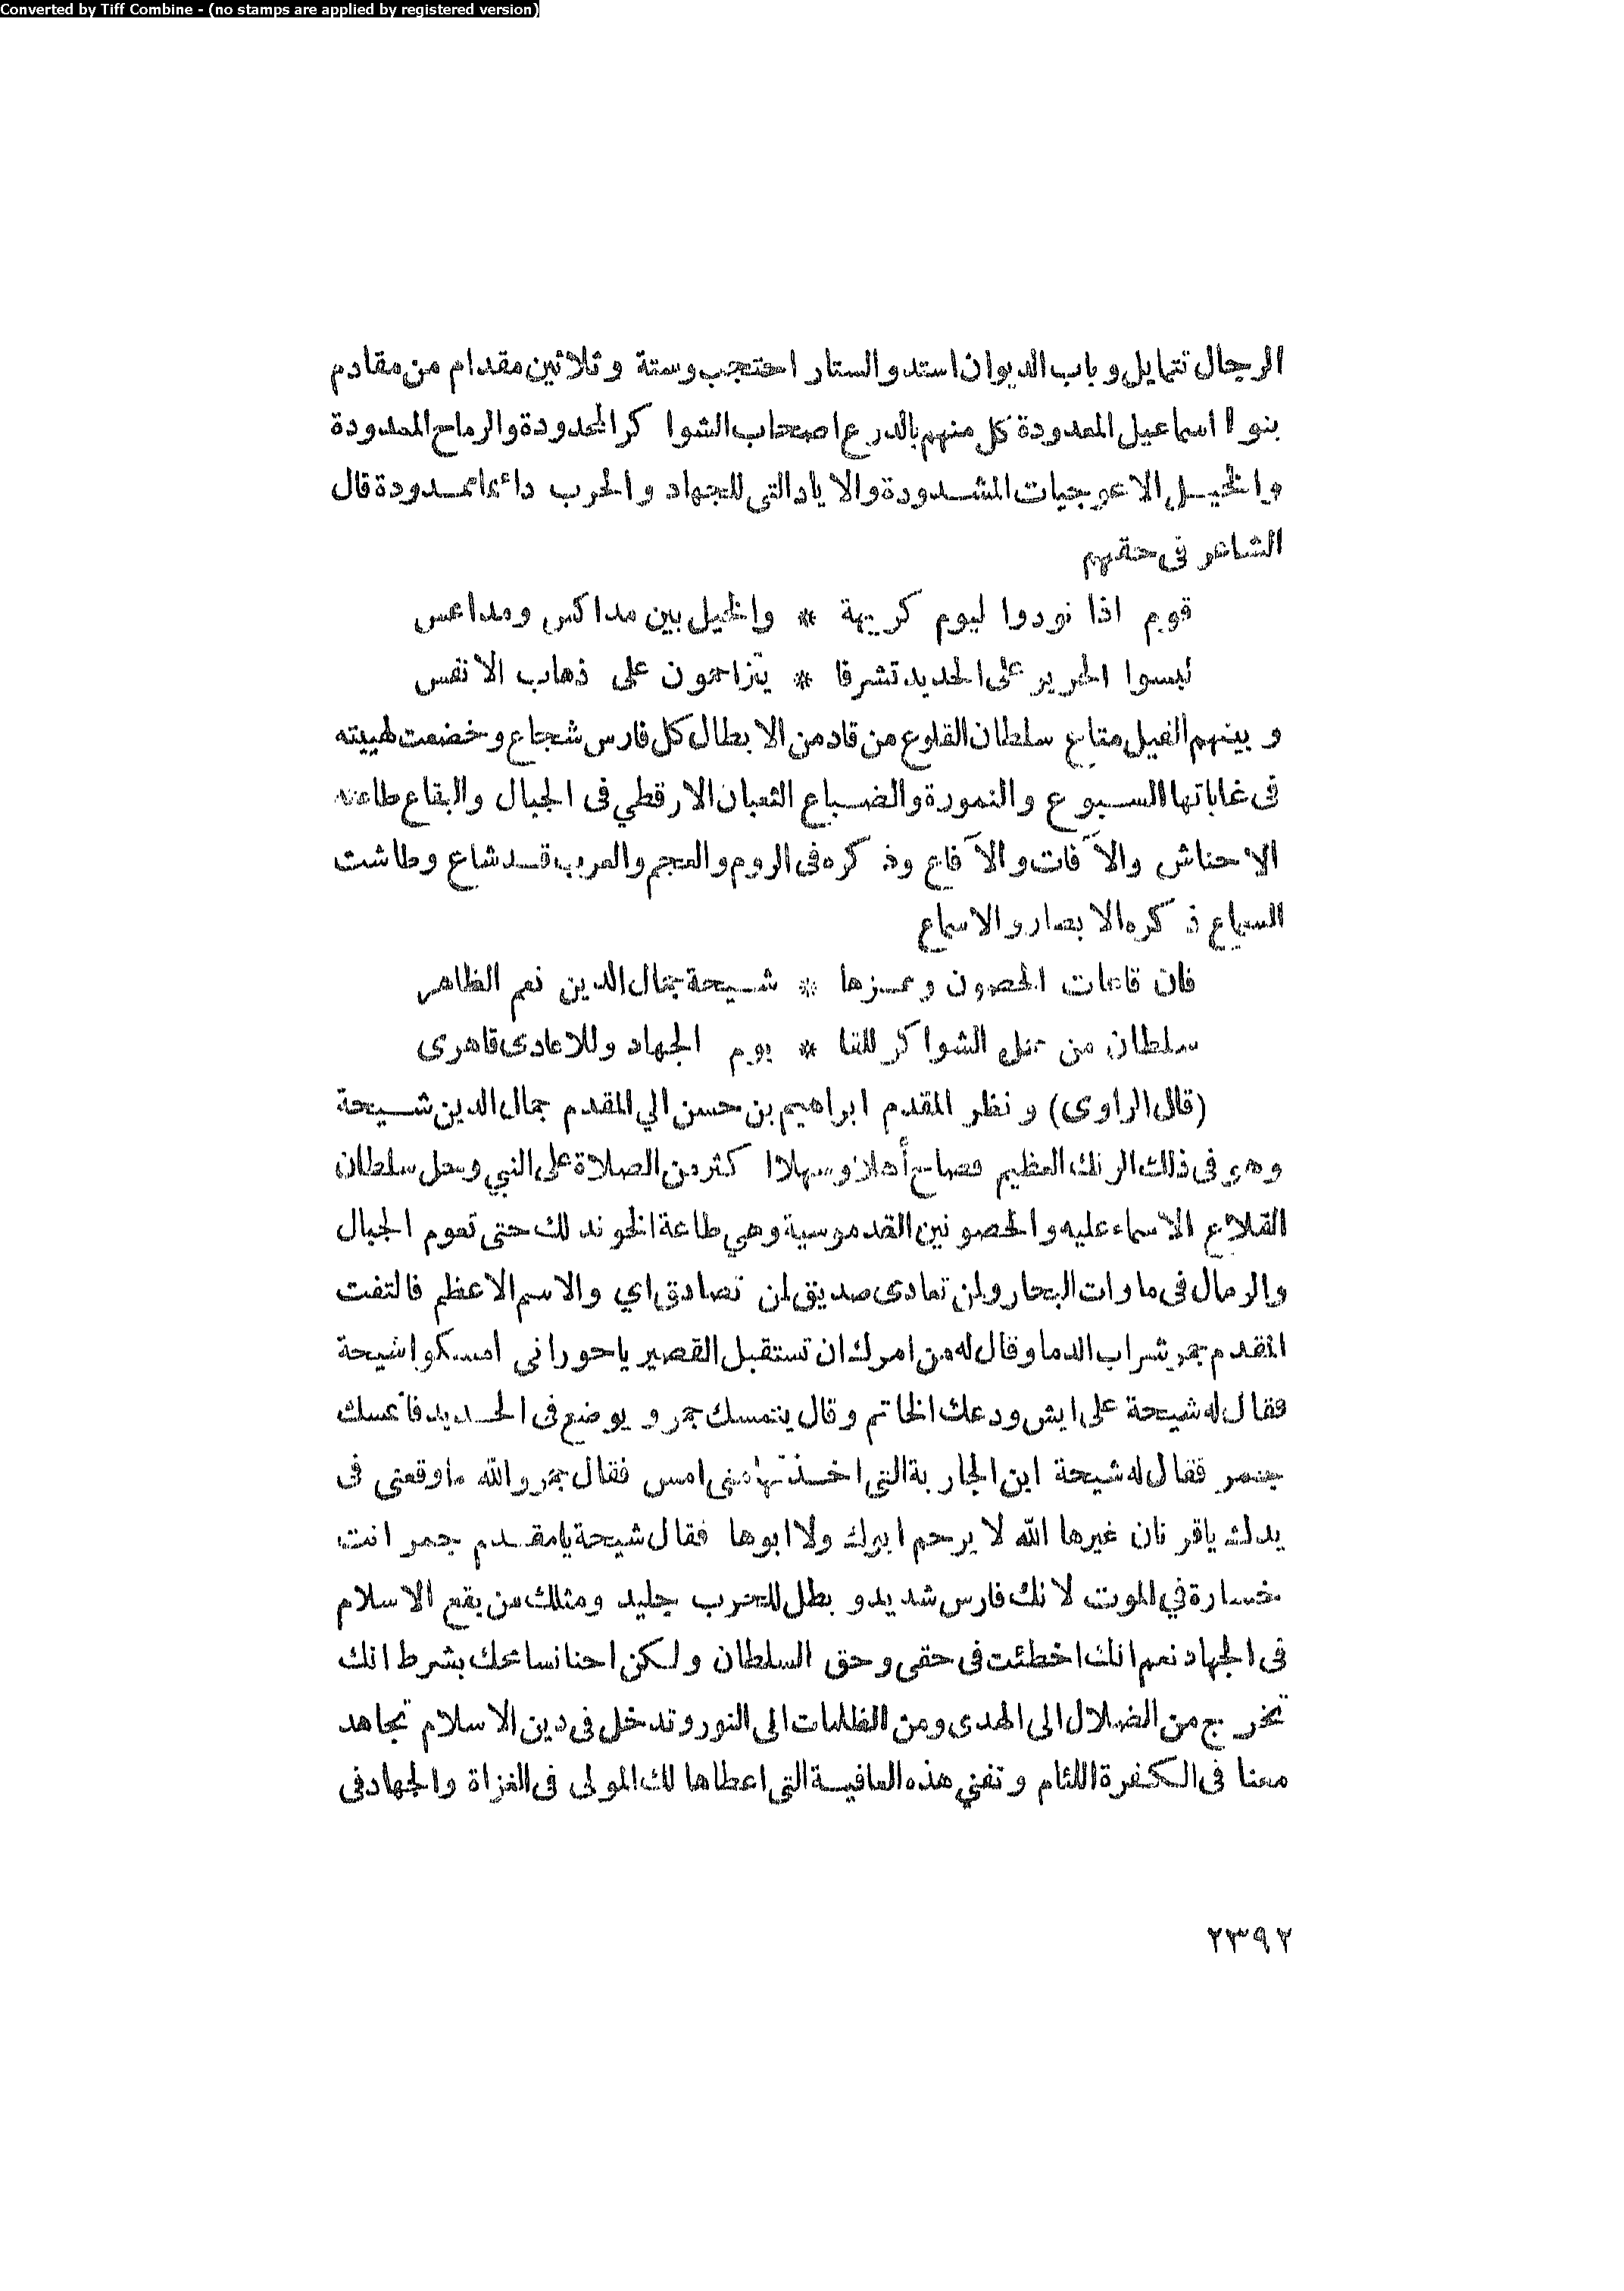 Converted by Tiff Combine - (no stamps are applied by registered version)
الرجال تتمايل وباب الديوان استد والستار احتجب وستة وثلاثين مقدام من مقادم
بنوا اسماعيل المعدودة كل منهم بالدرع اصحاب الشوا كر المحدودة والرماح المعدودة
والخيل الاعوجيات المشدودة والاياد التى للجهاد والحرب دائما ممدودة قال
الشاعر فى حقهم
قوم اذا نودوا ليوم كريهة * والخيل بين مداكس ومداعس
لبسوا الحرير على الحديد تشرفا * يتزاحمون على ذهاب الانفس
وبينهم الفيل مقلع سلطان القلوع من قاد من الابطال كل فارس شجاع وخضعت لهيبته
فى غاباتها السبوع والنمورة والضباع الثعبان الارقطي فى الجبال والبقاع طاعته
الاحناش والآفات والآفاع وذكره فى الروم والعجم والعرب قد شاع وطاشت
السماع ذكره الابصار والاسماع
فان قاعات الحصون وعزها * شيحة جمال الدين نعم الظاهر
سلطان من نقل الشوا كر للقا * يوم الجهاد وللاعادى قاهرى
(قال الراوى) ونظر المقدم ابراهيم بن حسن الي المقدم جمال الدين شيحة
وهو فى ذلك الرنك العظيم فصاح أهلا وسهلا اكثر من الصلاة على النبي وحل سلطان
القلاع الاسماء عليه والحصونين القدموسية وهي طاعة الخوند لك حتى تعوم الجبال
والرمال فى مارات البحار ولن تعادى صديق لمن تصادق اي والاسم الاعظم فالتفت
المقدم جمر شراب الدما وقال له من امرك ان تستقبل القصير ياحورانى امسكوا شيحة
فقال له شيحة على ايش ودعك الخاتم وقال يتمسك جمر ويوضع فى الحديد فانمسك
جمر فقال له شيحة اين الجاربة التى اخذتها منى امس فقال جمر والله ماوقعنى فى
يدك ياقرنان غيرها الله لا يرحم ابوك ولا ابوها فقال شيحة يا مقدم جمر انت
خسارة في الموت لانك فارس شديد وبطل للحرب جليد ومثلك من يقع الاسلام
فى الجهاد نعم انك اخطئت فى حقى وحق السلطان ولكن احنا نسامحك بشرط انك
تخرج من الضلال الى الهدى ومن الظلمات الى النور وتدخل فى دين الاسلام تجاهد
معنا فى الكفرة اللئام وتفني هذه العافية التى اعطاها لك المولى فى الغزاة والجهاد فى
٢٣٩٢